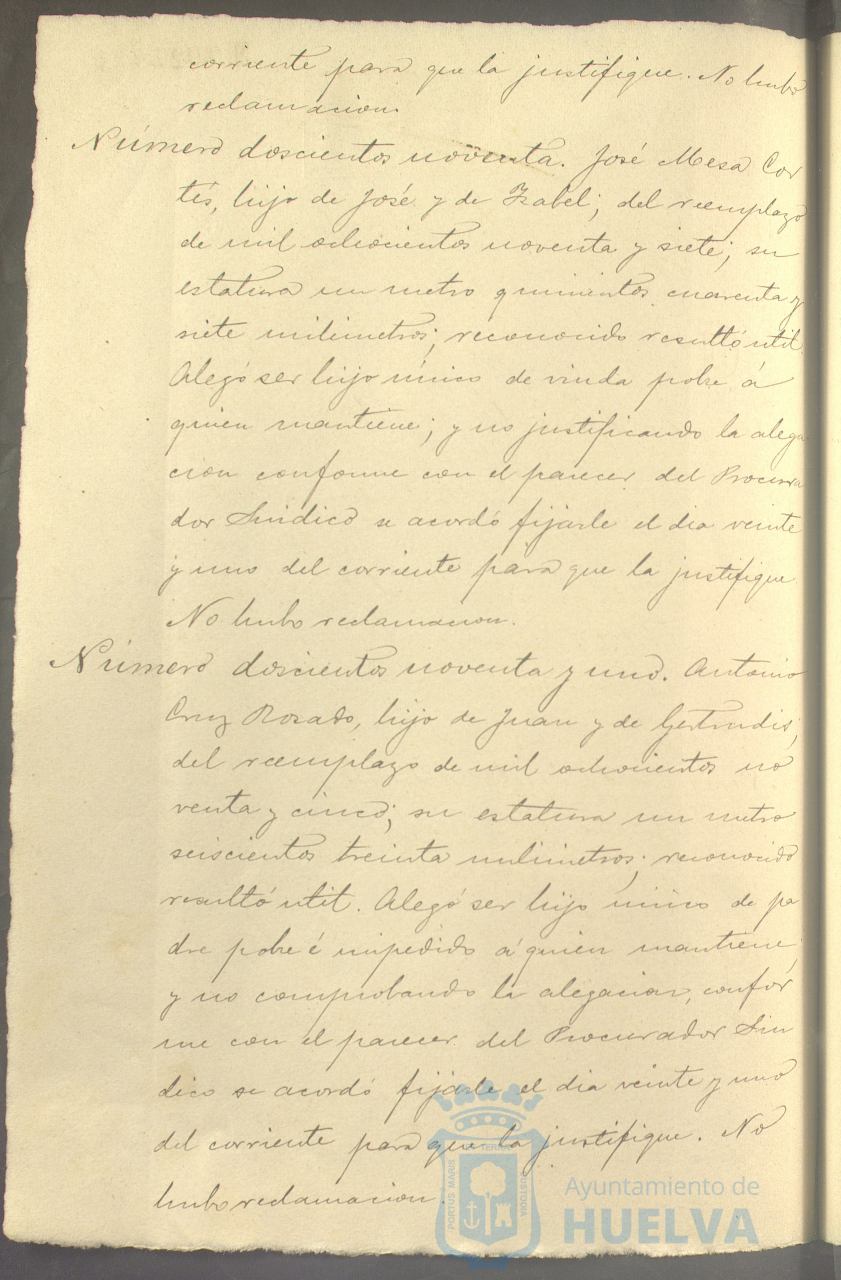 corriente para que la justifique. No hubo
reclamacion.
Número doscientos noventa. José Mesa Cor
tés, hijo de José y de Isabel; del reemplazo
de mil ochocientos noventa y siete; su
estatura un metro quinientos cuarenta y
siete milimetros; reconocido resultó util.
Alegó ser hijo único de viuda pobre á
quien mantiene; y no justificando la alega
cion conforme con el parecer del Procura
dor Sindico se acordó fijarle el dia veinte
y uno del corriente para que la justifique
No hubo reclamacion.
Número doscientos noventa y uno. Antonio
Cruz Rosado, hijo de Juan y de Gertrudis;
del reemplazo de mil ochocientos no
venta y cinco; su estatura un metro
seiscientos treinta milimetros; reconocido
resultó util. Alegó ser hijo único de pa
dre pobre é impedido á quien mantiene;
y no comprobando la alegacion, confor
me con el parecer del Procurador Sin
dico se acordó fijarle el dia veinte y uno
del corriente para que la justifique. No
hubo reclamacion.
PORTUS MARIS ET TERRAE CUSTODIA
Ayuntamiento de
HUELVA